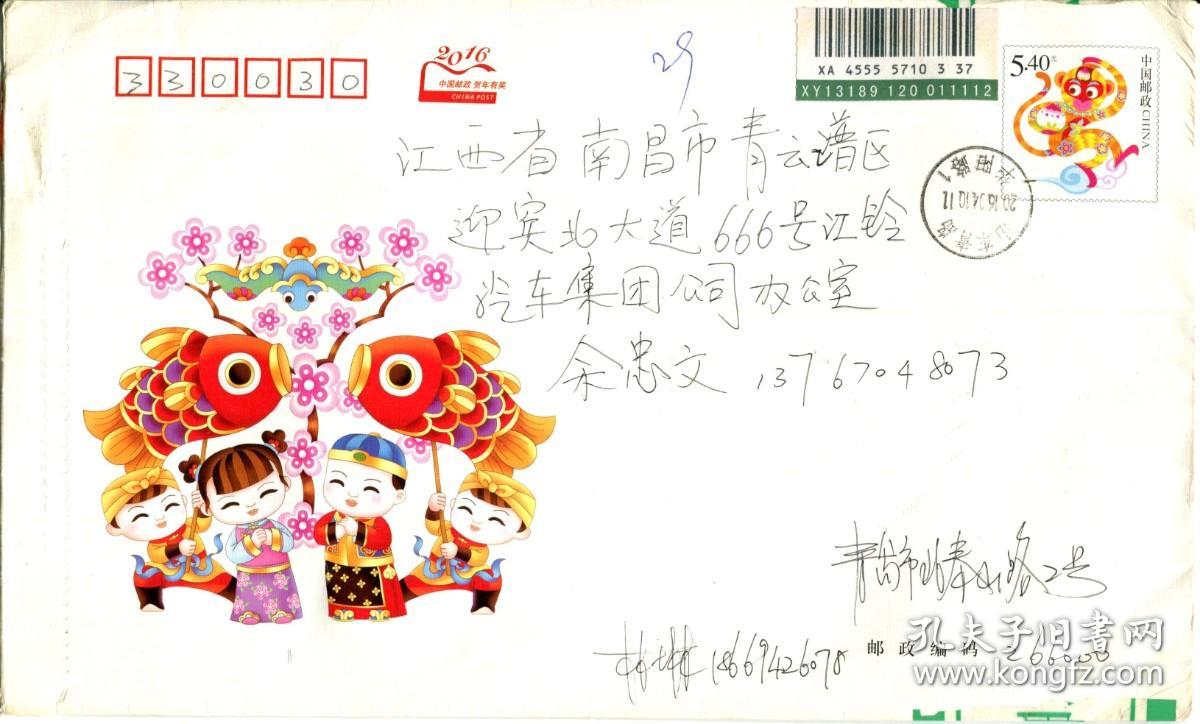 330030
2016
中国邮政 贺年有奖
CHINA POST
29
XA 4555 5710 3 37
XY13189 120 011112
5.40元
中国邮政 CHINA
江西省南昌市青云谱区
迎宾北大道666号江铃
汽车集团公司办公室
余忠文 13767048073
2016.04.10.17
号
18669426078
邮政编码 266000
孔夫子旧书网
www.kongfz.com